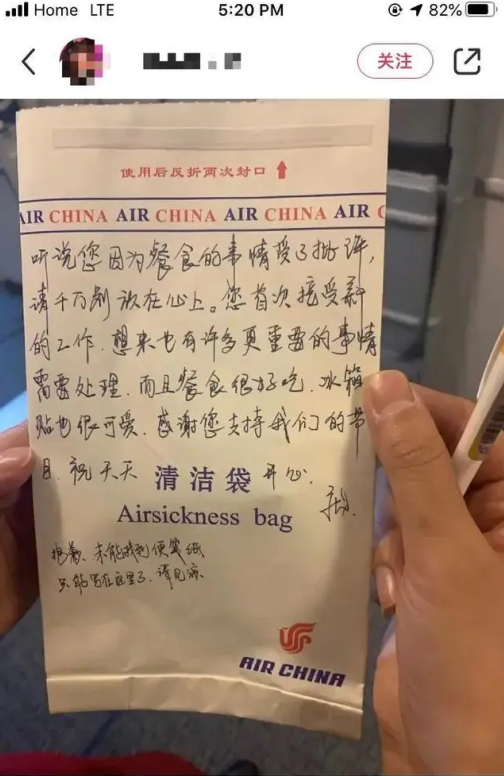 Home LTE 5:20 PM 82%
关注
使用后反折两次封口
AIR CHINA AIR CHINA AIR CHINA AIR C
听说您因为餐食的事情受了批评,
请千万别放在心上。您首次接受新
的工作,想来也有许多更重要的事情
需要处理,而且餐食很好吃,冰箱
贴也很可爱,感谢您支持我们的节
目,祝天天 清洁袋 开心.
Airsickness bag
抱歉,未能找到便笺纸
只能写在这里了,请见谅.
AIR CHINA